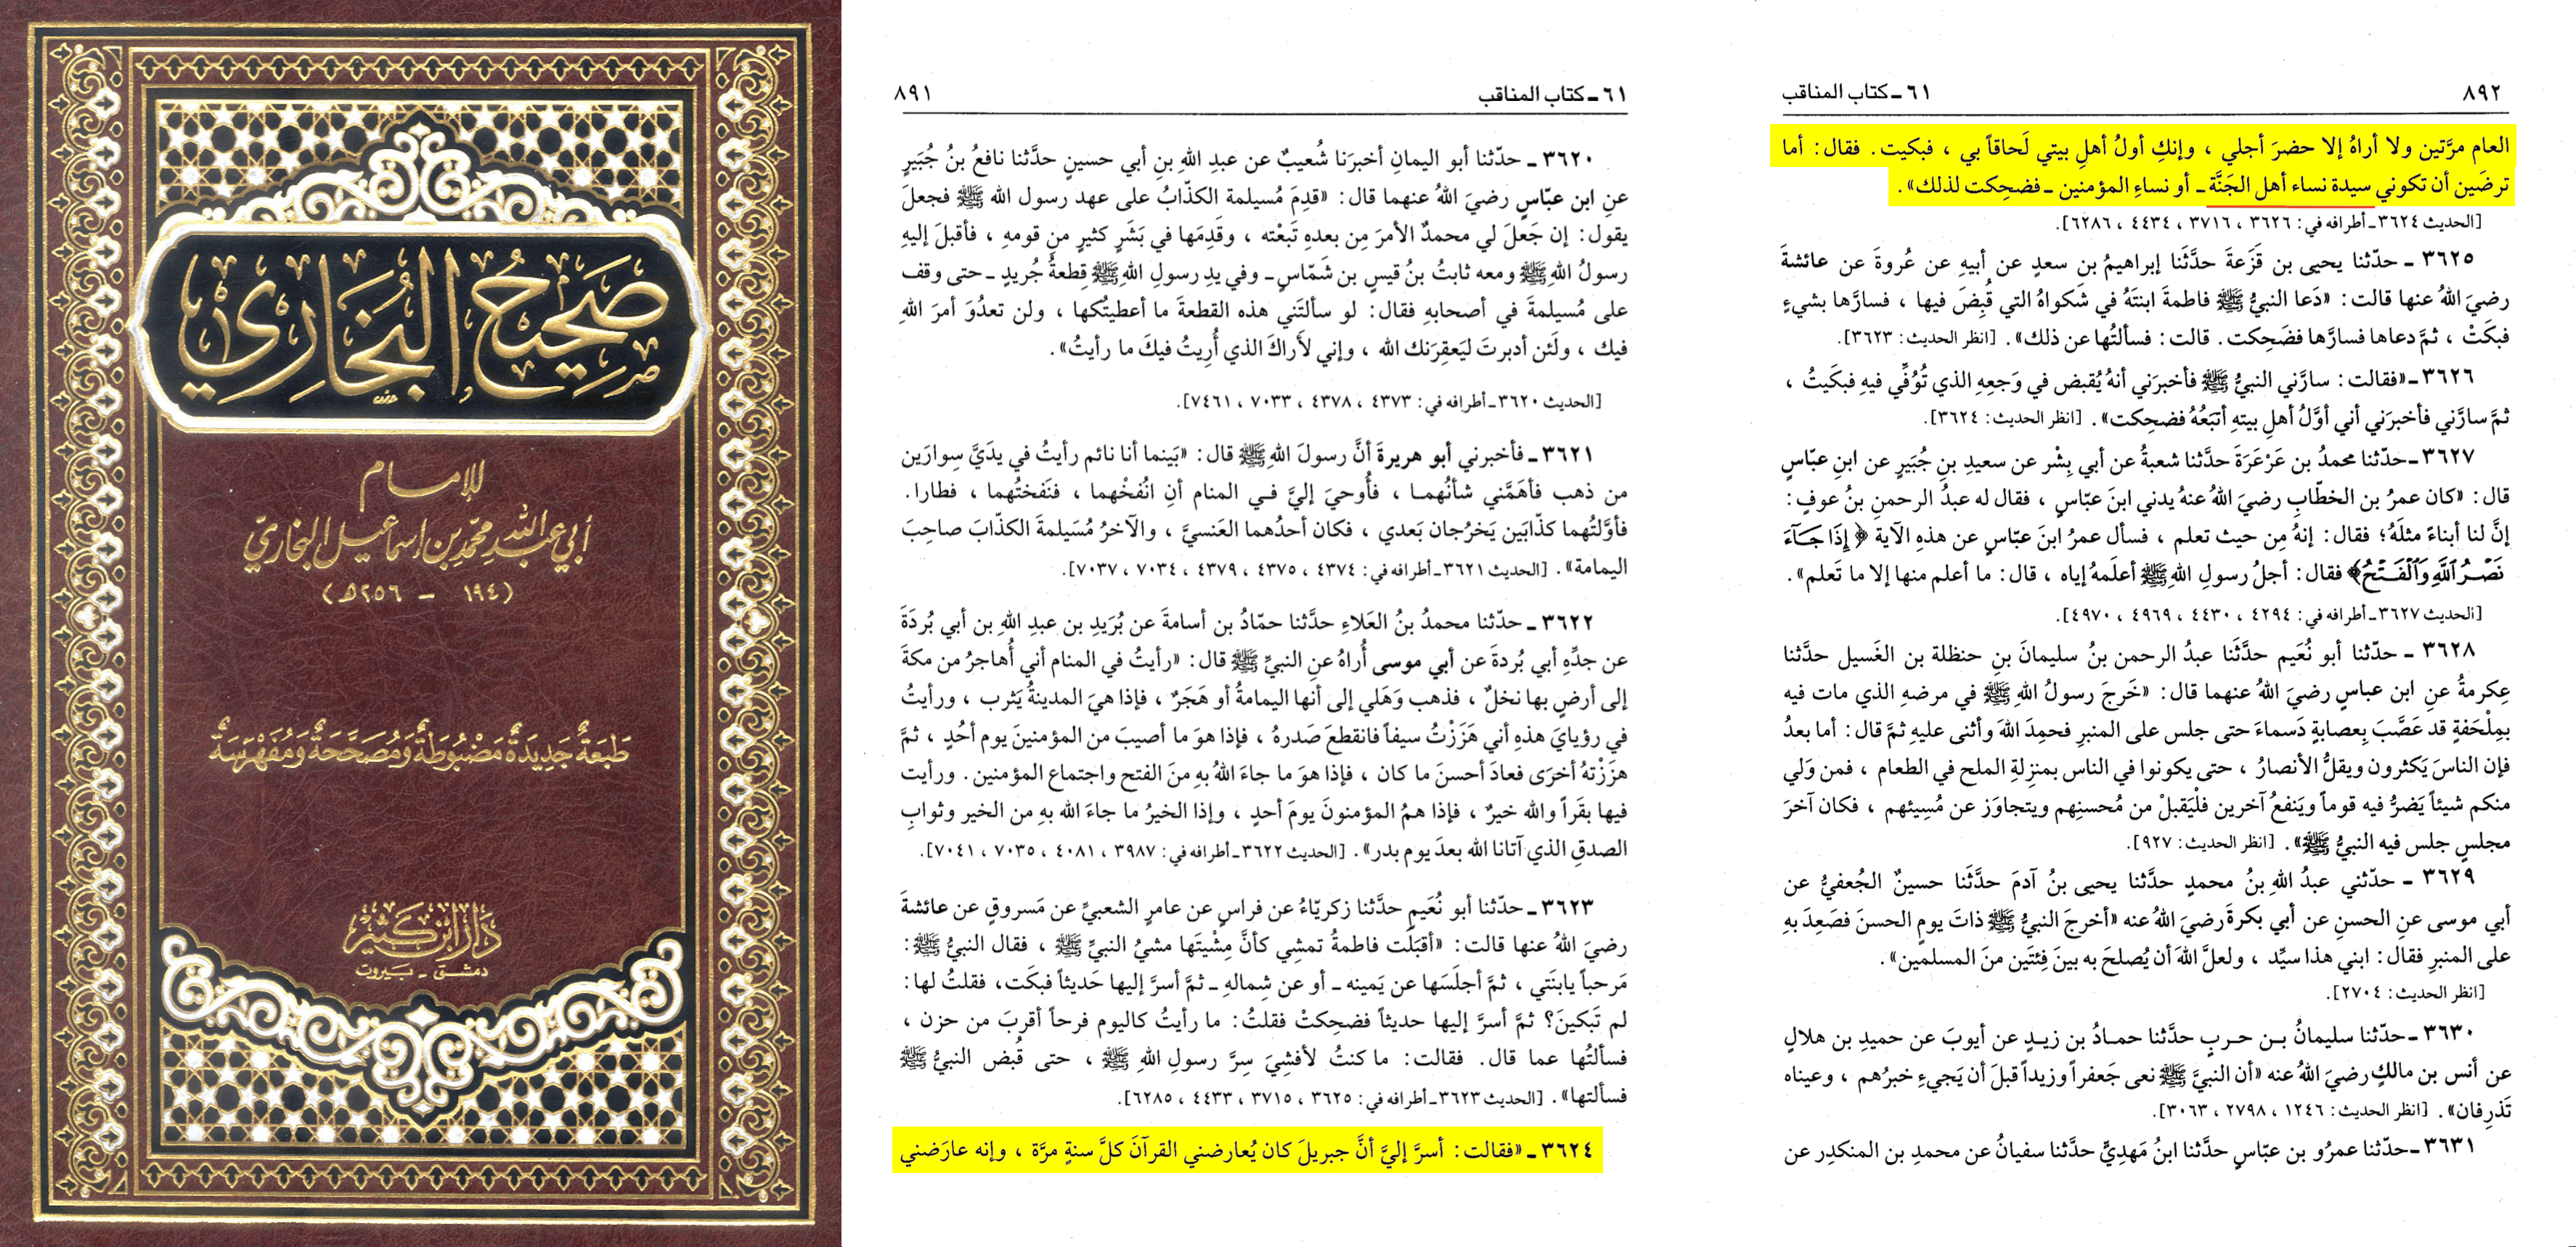 صَحِيحُ البُخَارِيّ
للإمام
أبي عبد الله محمّد بن إسماعيل البخاريّ
(١٩٤ - ٢٥٦ هـ)
طَبعَةٌ جَدِيدَةٌ مَضْبُوطَةٌ وَمُصَحَّحَةٌ وَمُفَهْرَسَةٌ
دَارُ ابْن كَثِيْر
دمشق - بيروت
٦١ ـ كتاب المناقب ٨٩١
٣٦٢٠ ـ حدّثنا أبو اليمانِ أخبرَنا شُعيبٌ عن عبدِ اللهِ بنِ أبي حسينٍ حدَّثنا نافعُ بنُ جُبَيرٍ
عنِ ابن عبّاسٍ رضيَ اللهُ عنهما قال: «قدِمَ مُسيلمة الكذّابُ على عهد رسول الله ﷺ فجعلَ
يقول: إن جَعلَ لي محمدٌ الأمرَ مِن بعدهِ تَبعْته ، وقدِمَها في بَشَرٍ كثيرٍ من قومهِ ، فأقبلَ إليهِ
رسولُ اللهِ ﷺ ومعه ثابتُ بنُ قيسِ بن شَمّاسٍ ـ وفي يدِ رسولِ اللهِ ﷺ قِطعةُ جُريدٍ ـ حتى وقف
على مُسيلمةَ في أصحابهِ فقال: لو سألتَني هذه القطعةَ ما أعطيتُكها ، ولن تعدُوَ أمرَ اللهِ
فيك ، ولَئن أدبرتَ ليَعقِرَنك الله ، وإني لأَراكَ الذي أُرِيتُ فيكَ ما رأيتُ».
[الحديث ٣٦٢٠ ـ أطرافه في: ٤٣٧٣ ، ٤٣٧٨ ، ٧٠٣٣ ، ٧٤٦١].
٣٦٢١ ـ فأخبرني أبو هريرةَ أنَّ رسولَ اللهِ ﷺ قال: «بَينما أنا نائم رأيتُ في يدَيَّ سِوارَين
من ذهب فأهَمَّني شأنُهما ، فأُوحيَ إليَّ في المنام أنِ انْفُخْهما ، فنَفختُهما ، فطارا.
فأوَّلتُهما كذّابَين يَخرُجان بَعدي ، فكان أحدُهما العَنسيَّ ، والآخرُ مُسَيلمةَ الكذّابَ صاحِبَ
اليمامة». [الحديث ٣٦٢١ ـ أطرافه في: ٤٣٧٤ ، ٤٣٧٥ ، ٤٣٧٩ ، ٧٠٣٤ ، ٧٠٣٧].
٣٦٢٢ ـ حدّثنا محمدُ بنُ العَلاءِ حدَّثنا حمّادُ بن أسامةَ عن بُرَيدِ بن عبدِ اللهِ بن أبي بُردَةَ
عن جدِّهِ أبي بُردةَ عن أبي موسى أُراهُ عنِ النبيِّ ﷺ قال: «رأيتُ في المنام أني أُهاجرُ من مكةَ
إلى أرضٍ بها نخلٌ ، فذهب وَهَلي إلى أنها اليمامةُ أو هَجَرٌ ، فإذا هيَ المدينةُ يَثرب ، ورأيتُ
في رؤيايَ هذهِ أني هَزَزْتُ سيفاً فانقطعَ صَدرهُ ، فإذا هوَ ما أصيبَ من المؤمنينَ يوم أُحُدٍ ، ثمَّ
هزَزْتهُ أخرَى فعادَ أحسنَ ما كان ، فإذا هوَ ما جاءَ اللهُ بهِ منَ الفتح واجتماع المؤمنين. ورأيت
فيها بقَراً والله خيرٌ ، فإذا همُ المؤمنونَ يومَ أحدٍ ، وإذا الخيرُ ما جاءَ الله بهِ من الخير وثوابِ
الصدقِ الذي آتانا الله بعدَ يوم بدر». [الحديث ٣٦٢٢ ـ أطرافه في: ٣٩٨٧ ، ٤٠٨١ ، ٧٠٣٥ ، ٧٠٤١].
٣٦٢٣ ـ حدّثنا أبو نُعَيمٍ حدَّثنا زكريّاءُ عن فراسٍ عن عامرٍ الشعبيِّ عن مَسروقٍ عن عائشةَ
رضيَ اللهُ عنها قالت: «أقبَلَت فاطمةُ تمشِي كأنَّ مِشْيتَها مشيُ النبيِّ ﷺ ، فقال النبيُّ ﷺ:
مَرحباً يابنَتَي ، ثمَّ أجلَسَها عن يَمينه ـ أو عن شِمالهِ ـ ثمَّ أسرَّ إليها حَديثاً فبكَت، فقلتُ لها:
لم تَبكينَ؟ ثمَّ أسرَّ إليها حديثاً فضحِكتْ فقلتُ: ما رأيتُ كاليوم فرحاً أقربَ من حزن ،
فسألتُها عما قال. فقالت: ما كنتُ لأفشِيَ سِرَّ رسولِ اللهِ ﷺ ، حتى قُبض النبيُّ ﷺ
فسألتها». [الحديث ٣٦٢٣ ـ أطرافه في: ٣٦٢٥ ، ٣٧١٥ ، ٤٤٣٣ ، ٦٢٨٥].
٣٦٢٤ ـ «فقالت: أسرَّ إليَّ أنَّ جبريلَ كان يُعارضني القرآنَ كلَّ سنةٍ مرَّة ، وإنه عارَضني
٨٩٢ ٦١ ـ كتاب المناقب
العام مرَّتين ولا أراهُ إلا حضرَ أجلي ، وإنكِ أولُ أهلِ بيتي لَحاقاً بي ، فبكيت. فقال: أما
ترضَين أن تكوني سيدة نساء أهل الجَنَّة ـ أو نساءِ المؤمنين ـ فضحِكت لذلك».
[الحديث ٣٦٢٤ ـ أطرافه في: ٣٦٢٦ ، ٣٧١٦ ، ٤٤٣٤ ، ٦٢٨٦].
٣٦٢٥ ـ حدّثنا يحيى بن قَزَعةَ حدَّثنَا إبراهيمُ بن سعدٍ عن أبيهِ عن عُروةَ عن عائشةَ
رضيَ اللهُ عنها قالت: «دَعا النبيُّ ﷺ فاطمةَ ابنتَهُ في شَكواهُ التي قُبِضَ فيها ، فسارَّها بشيءٍ
فبكَتْ ، ثمَّ دعاها فسارَّها فضَحِكت. قالت: فسألتُها عن ذلك». [انظر الحديث: ٣٦٢٣].
٣٦٢٦ ـ «فقالت: سارَّني النبيُّ ﷺ فأخبرَني أنهُ يُقبض في وَجعِهِ الذي تُوُفِّي فيهِ فبكَيتُ ،
ثمَّ سارَّني فأخبرَني أني أوَّلُ أهلِ بيتهِ أتبَعُهُ فضحِكت». [انظر الحديث: ٣٦٢٤].
٣٦٢٧ ـ حدّثنا محمدُ بن عَرْعَرَةَ حدَّثنا شعبةُ عن أبي بِشْر عن سعيدِ بنِ جُبَيرٍ عن ابنِ عبّاسٍ
قال: «كان عمرُ بن الخطّابِ رضيَ اللهُ عنهُ يدني ابنَ عبّاسٍ ، فقال له عبدُ الرحمنِ بنُ عوفٍ:
إنَّ لنا أبناءً مثلَهُ؛ فقال: إنهُ مِن حيث تعلم ، فسأل عمرُ ابنَ عبّاسٍ عن هذهِ الآية ﴿إِذَا جَآءَ
نَصْرُ ٱللَّهِ وَٱلْفَتْحُ﴾ فقال: أجلُ رسولِ اللهِ ﷺ أعلَمهُ إياه ، قال: ما أعلم منها إلا ما تَعلم».
[الحديث ٣٦٢٧ ـ أطرافه في: ٤٢٩٤ ، ٤٤٣٠ ، ٤٩٦٩ ، ٤٩٧٠].
٣٦٢٨ ـ حدّثنا أبو نُعَيم حدَّثَنا عبدُ الرحمن بنُ سليمانَ بنِ حنظلة بن الغَسيل حدَّثنا
عِكرمةُ عنِ ابن عباسٍ رضيَ اللهُ عنهما قال: «خَرجَ رسولُ اللهِ ﷺ في مرضهِ الذي مات فيه
بمِلْحَفةٍ قد عَصَّبَ بِعصابةٍ دَسماءَ حتى جلس على المنبرِ فحمِدَ اللهَ وأثنى عليهِ ثمَّ قال: أما بعدُ
فإن الناسَ يَكثرون ويقلُّ الأنصارُ ، حتى يكونوا في الناس بمنزِلةِ الملح في الطعام ، فمن وَلي
منكم شيئاً يَضرُّ فيه قوماً ويَنفعُ آخرين فلْيَقبلْ من مُحسنِهم ويتجاوَز عن مُسِيئهم ، فكان آخرَ
مجلسٍ جلس فيه النبيُّ ﷺ». [انظر الحديث: ٩٢٧].
٣٦٢٩ ـ حدّثني عبدُ اللهِ بنُ محمدٍ حدَّثنا يحيى بنُ آدمَ حدَّثَنا حسينٌ الجُعفيُّ عن
أبي موسى عنِ الحسنِ عن أبي بكرةَ رضيَ اللهُ عنه «أخرجَ النبيُّ ﷺ ذاتَ يومٍ الحسنَ فصَعِدَ بهِ
على المنبرِ فقال: ابني هذا سيِّد ، ولعلَّ اللهَ أن يُصلحَ به بينَ فِئتَين منَ المسلمين».
[انظر الحديث: ٢٧٠٤].
٣٦٣٠ ـ حدّثنا سليمانُ بن حربٍ حدَّثنا حمادُ بن زيدٍ عن أيوبَ عن حميدِ بن هلالٍ
عن أنس بن مالكٍ رضيَ اللهُ عنه «أن النبيَّ ﷺ نعى جَعفراً وزيداً قبلَ أن يَجيءِ خبرُهم ، وعيناه
تَذرِفان». [انظر الحديث: ١٢٤٦ ، ٢٧٩٨ ، ٣٠٦٣].
٣٦٣١ ـ حدّثنا عمرُو بن عبّاسٍ حدَّثنا ابنُ مَهدِيٍّ حدَّثنا سفيانُ عن محمدِ بن المنكدِر عن